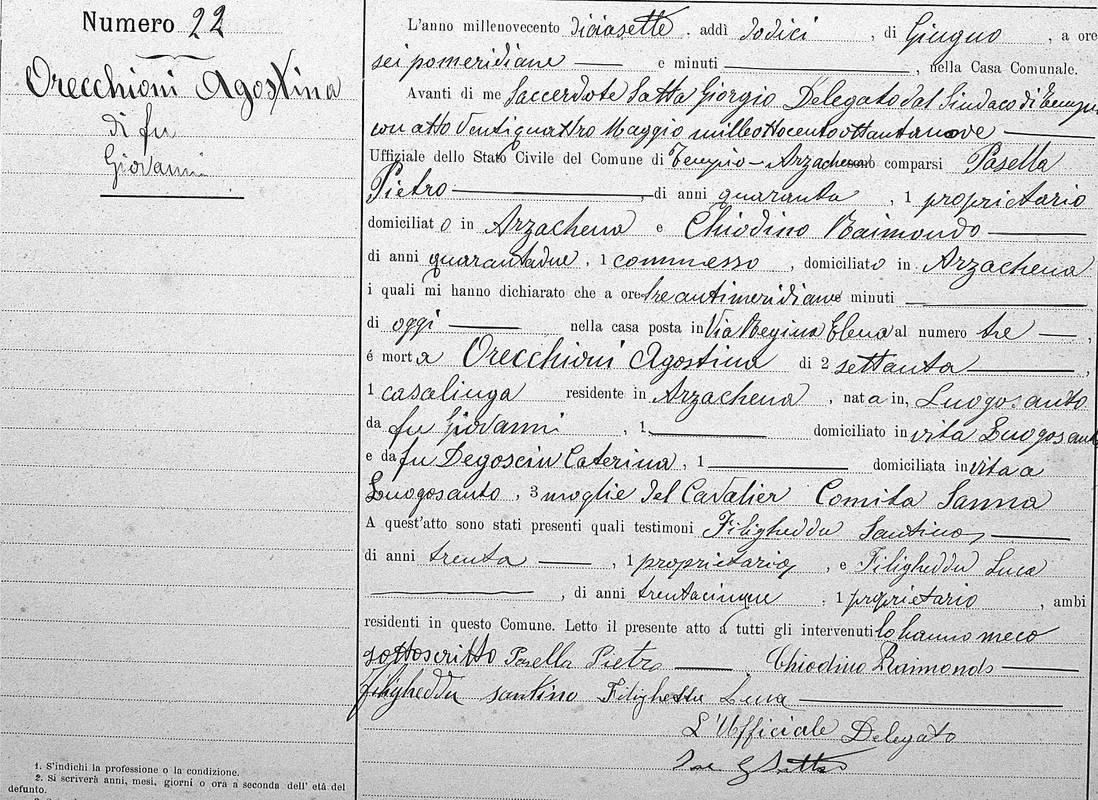 Numero 22
Orecchioni Agostina
di fu
Giovanni
1. S'indichi la professione o la condizione.
2. Si scriverà anni, mesi, giorni o ora a seconda dell' età del
defunto.
L'anno millenovecento diciasette, addì dodici, di Giugno, a ore
sei pomeridiane e minuti, nella Casa Comunale.
Avanti di me Saccerdote Satta Giorgio Delegato dal Sindaco di Tempio
con atto Ventiquattro Maggio millottocentottantanove
Uffiziale dello Stato Civile del Comune di Tempio - Arzachena comparsi Pasella
Pietro, di anni quaranta, 1 proprietario
domiciliato in Arzachena e Chiodino Raimondo
di anni quarantadue, 1 commesso, domiciliato in Arzachena
i quali mi hanno dichiarato che a ore tre antimeridiane minuti
di oggi nella casa posta in Via Regina Elena al numero tre,
é morta Orecchioni Agostina di 2 settanta,
1 casalinga residente in Arzachena, nata in, Luogosanto
da fu Giovanni, 1 domiciliato in vita Luogosanto
e da fu Degoscin Caterina, 1 domiciliata in vita a
Luogosanto, 3 moglie del Cavalier Comita Sanna
A quest'atto sono stati presenti quali testimoni Filigheddu Santino,
di anni trenta, 1 proprietario, e Filigheddu Luca
, di anni trentacinque, 1 proprietario, ambi
residenti in questo Comune. Letto il presente atto a tutti gli intervenuti lo hanno meco
sottoscritto Pasella Pietro Chiodino Raimondo
filigheddu santino Filigheddu Luca
L'Ufficiale Delegato
Sac G Satta